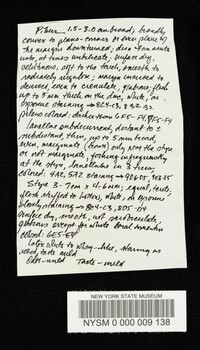 Pileus 1.5-3.0 cm broad; broadly
convex to plano-convex or even plane w/
the margin downturned; disc
umbo, at times umbilicate; surface dry,
velutinous, soft to the touch, smooth to
radiately rugulose; margin incurved to
decurved, even to crenulate, glabrous; flesh
up to 3 mm thick on the disc, white, on
exposure staining → 8C4-C3, 8B2-B3.
pileus colored: darker than 6E5-F4,
Lamellae subdecurrent, distant to ±
subdistant, thick, up to 5 mm broad
even, marginate (brown) only near the stipe
or not marginate, forking infrequently
at the stipe, lamellulae in 3 tiers;
colored: 4A2, 5A2 staining →
Stipe 3-7 cm x 4-6 mm, equal, terete,
flesh stuffed to hollow, white, on exposure
slowly staining → 8C4-C3, 8D5-D4
surface dry, smooth, not
glabrous except for white basal tomentum
colored: 6E5-E4
Latex white to whey-like, staining as
noted, taste mild
Odor-mild Taste-mild
NEW YORK STATE MUSEUM
NYSM 0 000 009 138